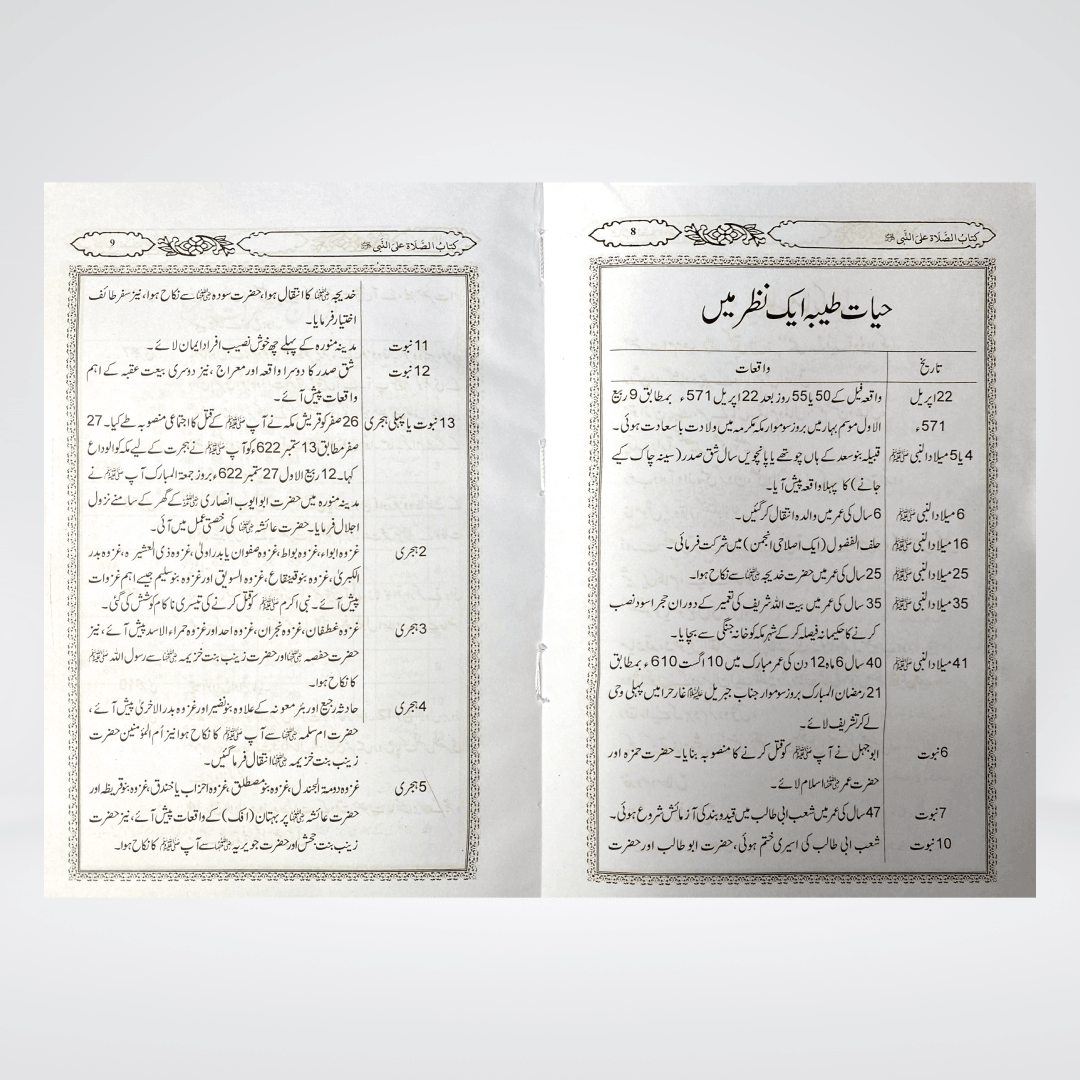 8 کتابُ الصَّلاۃ علیَ النَّبی ﷺ
حیات طیبہ ایک نظر میں
تاریخ واقعات
22 اپریل واقعہ فیل کے 50 یا 55 روز بعد 22 اپریل 571ء بمطابق 9 ربیع
571ء الاول موسم بہار میں بروز سوموار مکہ مکرمہ میں ولادت با سعادت ہوئی۔
4 یا 5 میلاد النبی ﷺ قبیلہ بنو سعد کے ہاں چوتھے یا پانچویں سال شق صدر (سینہ چاک کیے
جانے) کا پہلا واقعہ پیش آیا۔
6 میلاد النبی ﷺ 6 سال کی عمر میں والدہ انتقال کر گئیں۔
16 میلاد النبی ﷺ حلف الفضول (ایک اصلاحی انجمن) میں شرکت فرمائی۔
25 میلاد النبی ﷺ 25 سال کی عمر میں حضرت خدیجہ رضی اللہ عنہا سے نکاح ہوا۔
35 میلاد النبی ﷺ 35 سال کی عمر میں بیت اللہ شریف کی تعمیر کے دوران حجر اسود نصب
کرنے کا حکیمانہ فیصلہ کر کے شہر مکہ کو خانہ جنگی سے بچایا۔
41 میلاد النبی ﷺ 40 سال 6 ماہ 12 دن کی عمر مبارک میں 10 اگست 610ء بمطابق
21 رمضان المبارک بروز سوموار جناب جبریل علیہ السلام غار حرا میں پہلی وحی
لے کر تشریف لائے۔
6 نبوت ابو جہل نے آپ ﷺ کو قتل کرنے کا منصوبہ بنایا۔ حضرت حمزہ اور
حضرت عمر رضی اللہ عنہما اسلام لائے۔
7 نبوت 47 سال کی عمر میں شعب ابی طالب میں قید و بند کی آزمائش شروع ہوئی۔
10 نبوت شعب ابی طالب کی اسیری ختم ہوئی، حضرت ابو طالب اور حضرت
9 کتابُ الصَّلاۃ علیَ النَّبی ﷺ
خدیجہ رضی اللہ عنہا کا انتقال ہوا، حضرت سودہ رضی اللہ عنہا سے نکاح ہوا، نیز سفر طائف
اختیار فرمایا۔
11 نبوت مدینہ منورہ کے پہلے چھ خوش نصیب افراد ایمان لائے۔
12 نبوت شق صدر کا دوسرا واقعہ اور معراج، نیز دوسری بیعت عقبہ کے اہم
واقعات پیش آئے۔
13 نبوت یا پہلی ہجری 26 صفر کو قریش مکہ نے آپ ﷺ کے قتل کا اجتماعی منصوبہ طے کیا۔ 27
صفر مطابق 13 ستمبر 622ء کو آپ ﷺ نے ہجرت کے لیے مکہ کو الوداع
کہا۔ 12 ربیع الاول 27 ستمبر 622ء بروز جمعۃ المبارک آپ ﷺ نے
مدینہ منورہ میں حضرت ابو ایوب انصاری رضی اللہ عنہ کے گھر کے سامنے نزول
اجلال فرمایا۔ حضرت عائشہ رضی اللہ عنہا کی رخصتی عمل میں آئی۔
2 ہجری غزوہ ابواء، غزوہ بواط، غزوہ صفوان یا بدر اولیٰ، غزوہ ذی العشیرہ، غزوہ بدر
الکبریٰ، غزوہ بنو قینقاع، غزوہ السویق اور غزوہ بنو سلیم جیسے اہم غزوات
پیش آئے۔ نبی اکرم ﷺ کو قتل کرنے کی تیسری ناکام کوشش کی گئی۔
3 ہجری غزوہ غطفان، غزوہ نجران، غزوہ احد اور غزوہ حمراء الاسد پیش آئے، نیز
حضرت حفصہ رضی اللہ عنہا اور حضرت زینب بنت خزیمہ رضی اللہ عنہا سے رسول اللہ ﷺ
کا نکاح ہوا۔
4 ہجری حادثہ رجیع اور بئر معونہ کے علاوہ بنو نضیر اور غزوہ بدر الاخریٰ پیش آئے،
حضرت ام سلمہ رضی اللہ عنہا سے آپ ﷺ کا نکاح ہوا نیز اُم المؤمنین حضرت
زینب بنت خزیمہ رضی اللہ عنہا انتقال فرما گئیں۔
5 ہجری غزوہ دومۃ الجندل، غزوہ بنو مصطلق، غزوہ احزاب یا خندق، غزوہ بنو قریظہ اور
حضرت عائشہ رضی اللہ عنہا پر بہتان (افک) کے واقعات پیش آئے، نیز حضرت
زینب بنت جحش اور حضرت جویریہ رضی اللہ عنہا سے آپ ﷺ کا نکاح ہوا۔